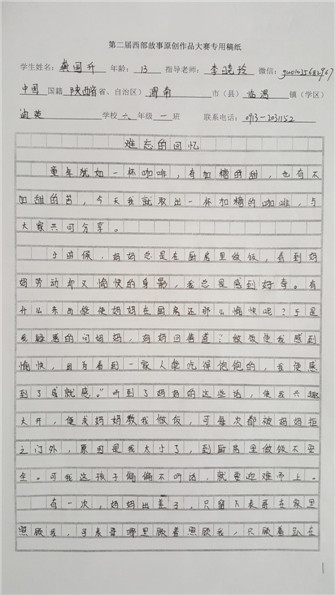 第二届西部故事原创作品大赛专用稿纸
学生姓名：龚国升 年龄：13 指导老师：李晓玲 微信：
中国 国籍 陕西省 省、自治区） 渭南 市（县） 临渭 镇（学区）
学校 六 年级 一 班 联系电话：0913-2031152
难忘的回忆
童年就如一杯咖啡，有加糖的甜，也有不
加甜的苦，今天我就取出一杯加糖的咖啡，与
大家共同分享。
小时候，妈妈总是在厨房里做饭，看到妈
妈劳动却又愉快的身影，我总是感到好奇。有
什么东西能使妈妈在厨房还那么愉快呢？于是
我疑惑的问妈妈，妈妈回答道：做饭使我感到
愉快，且当看到一家人能吃得饱饱的，我便感
到了成就感。”听到了妈妈的这些话，使我兴趣
大开，便求妈妈教我做饭，可每次都被妈妈拒
之门外，原因是我太小了，到厨房里做饭不安
全。可我这孩子偏偏不听话，就要迎难而上。
有一次，妈妈出差了，只留下表哥在家里
照顾我，可表哥哪里顾着照顾我，只顾着趴在